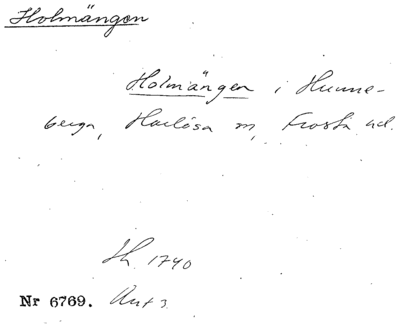 Holmängen
Holmängen i Hunne-
berga, Harlösa sn, Frosta hd.
Sk. 1740
Nr 6769. Ant 3